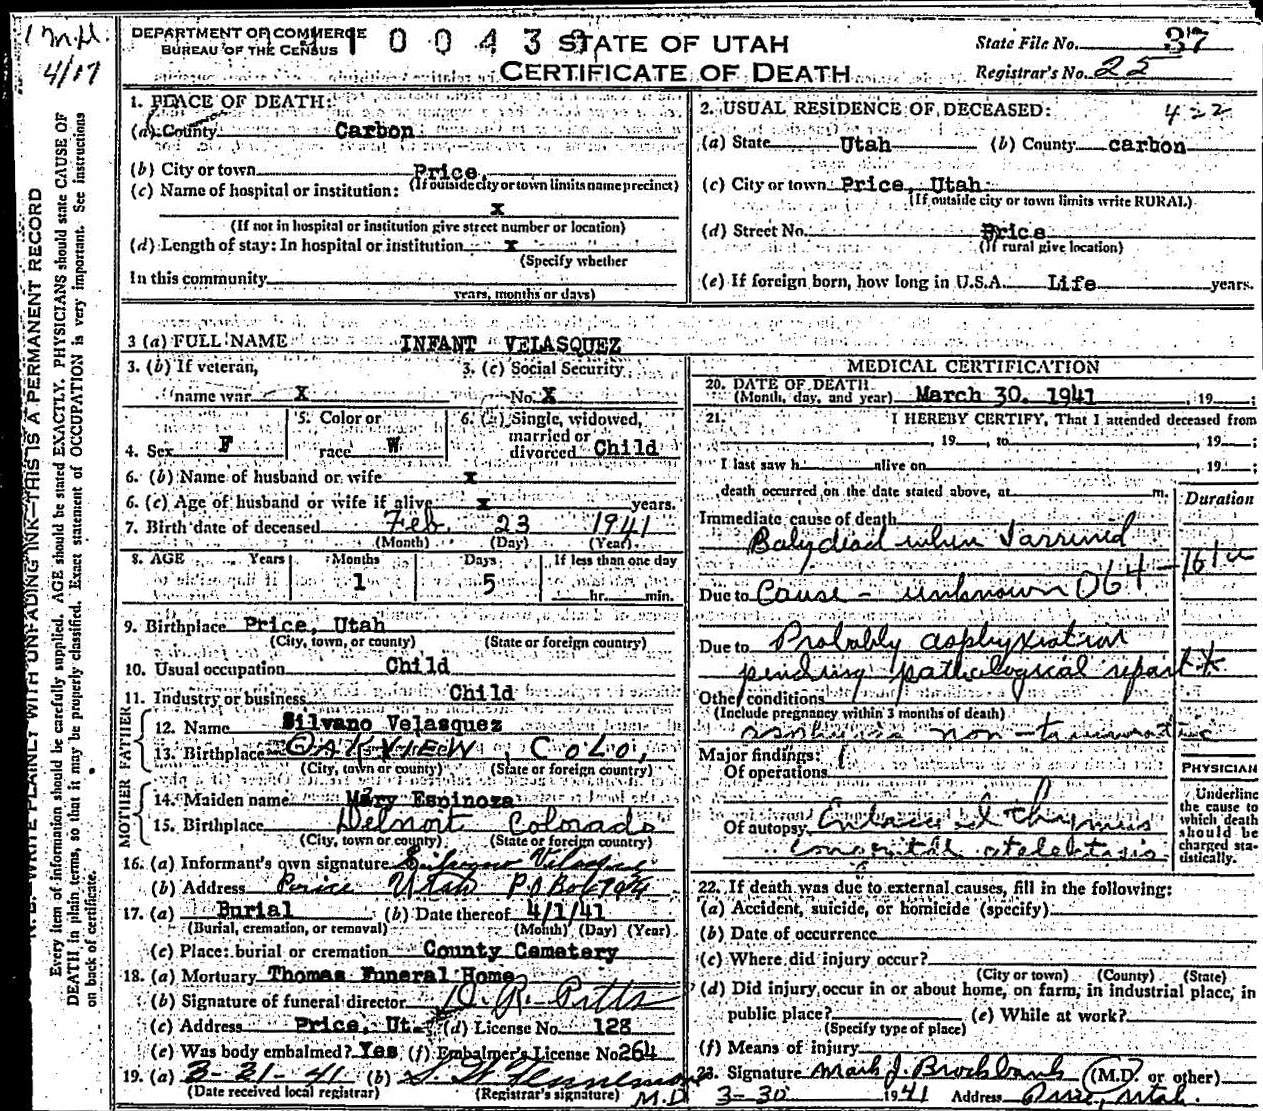 1 M.H.
4/17
N.B. WRITE PLAINLY WITH UNFADING INK—THIS IS A PERMANENT RECORD
Every item of information should be carefully supplied. AGE should be stated EXACTLY. PHYSICIANS should state CAUSE OF
DEATH in plain terms, so that it may be properly classified. Exact statement of OCCUPATION is very important. See instructions
on back of certificate.
DEPARTMENT OF COMMERCE
BUREAU OF THE CENSUS
1 0 0 4 3
STATE OF UTAH
CERTIFICATE OF DEATH
State File No. 37
Registrar's No. 25
1. PLACE OF DEATH:
(a) County Carbon
(b) City or town Price
(If outside city or town limits name precinct)
(c) Name of hospital or institution:
x
(If not in hospital or institution give street number or location)
(d) Length of stay: In hospital or institution x
(Specify whether
In this community
years, months or days)
2. USUAL RESIDENCE OF DECEASED: 4-22
(a) State Utah (b) County carbon
(c) City or town Price, Utah
(If outside city or town limits write RURAL)
(d) Street No. Price
(If rural give location)
(e) If foreign born, how long in U.S.A. Life years.
3 (a) FULL NAME INFANT VELASQUEZ
3. (b) If veteran, name war X
3. (c) Social Security No. X
4. Sex F
5. Color or race W
6. (a) Single, widowed, married or divorced Child
6. (b) Name of husband or wife x
6. (c) Age of husband or wife if alive x years.
7. Birth date of deceased Feb. 23 1941
(Month) (Day) (Year)
8. AGE Years Months Days If less than one day
1 5 hr. min.
9. Birthplace Price, Utah
(City, town, or county) (State or foreign country)
10. Usual occupation Child
11. Industry or business Child
FATHER
12. Name Silvano Velasquez
13. Birthplace OAKVIEW, COLO,
(City, town or county) (State or foreign country)
MOTHER
14. Maiden name Mary Espinoza
15. Birthplace Delnort Colorado
(City, town or county) (State or foreign country)
16. (a) Informant's own signature Silvano Velasquez
(b) Address Price Utah P O Box
17. (a) Burial (b) Date thereof 4/1/41
(Burial, cremation, or removal) (Month) (Day) (Year)
(c) Place: burial or cremation County Cemetery
18. (a) Mortuary Thomas Funeral Home
(b) Signature of funeral director
(c) Address Price, Ut. (d) License No. 128
(e) Was body embalmed? Yes (f) Embalmer's License No 264
19. (a) 3-31-41 (b)
(Date received local registrar) (Registrar's signature) M.D.
MEDICAL CERTIFICATION
20. DATE OF DEATH
(Month, day, and year) March 30, 1941, 19 ;
21. I HEREBY CERTIFY, That I attended deceased from
, 19 , to , 19 ;
I last saw h alive on , 19 ;
death occurred on the date stated above, at m.
Duration
Immediate cause of death
Baby dead when I arrived
161a
Due to Cause - unknown 064
Due to Probably asphyxiation
pending pathological report *
Other conditions
(Include pregnancy within 3 months of death)
asphyxia non-traumatic
Major findings:
Of operations
Of autopsy Enlarged thymus
congenital atelektasis
PHYSICIAN
Underline
the cause to
which death
should be
charged sta-
tistically.
22. If death was due to external causes, fill in the following:
(a) Accident, suicide, or homicide (specify)
(b) Date of occurrence
(c) Where did injury occur?
(City or town) (County) (State)
(d) Did injury occur in or about home, on farm, in industrial place, in
public place? (e) While at work?
(Specify type of place)
(f) Means of injury
23. Signature Mark J. Brockbank (M.D. or other)
3-30 1941 Address Price, Utah.